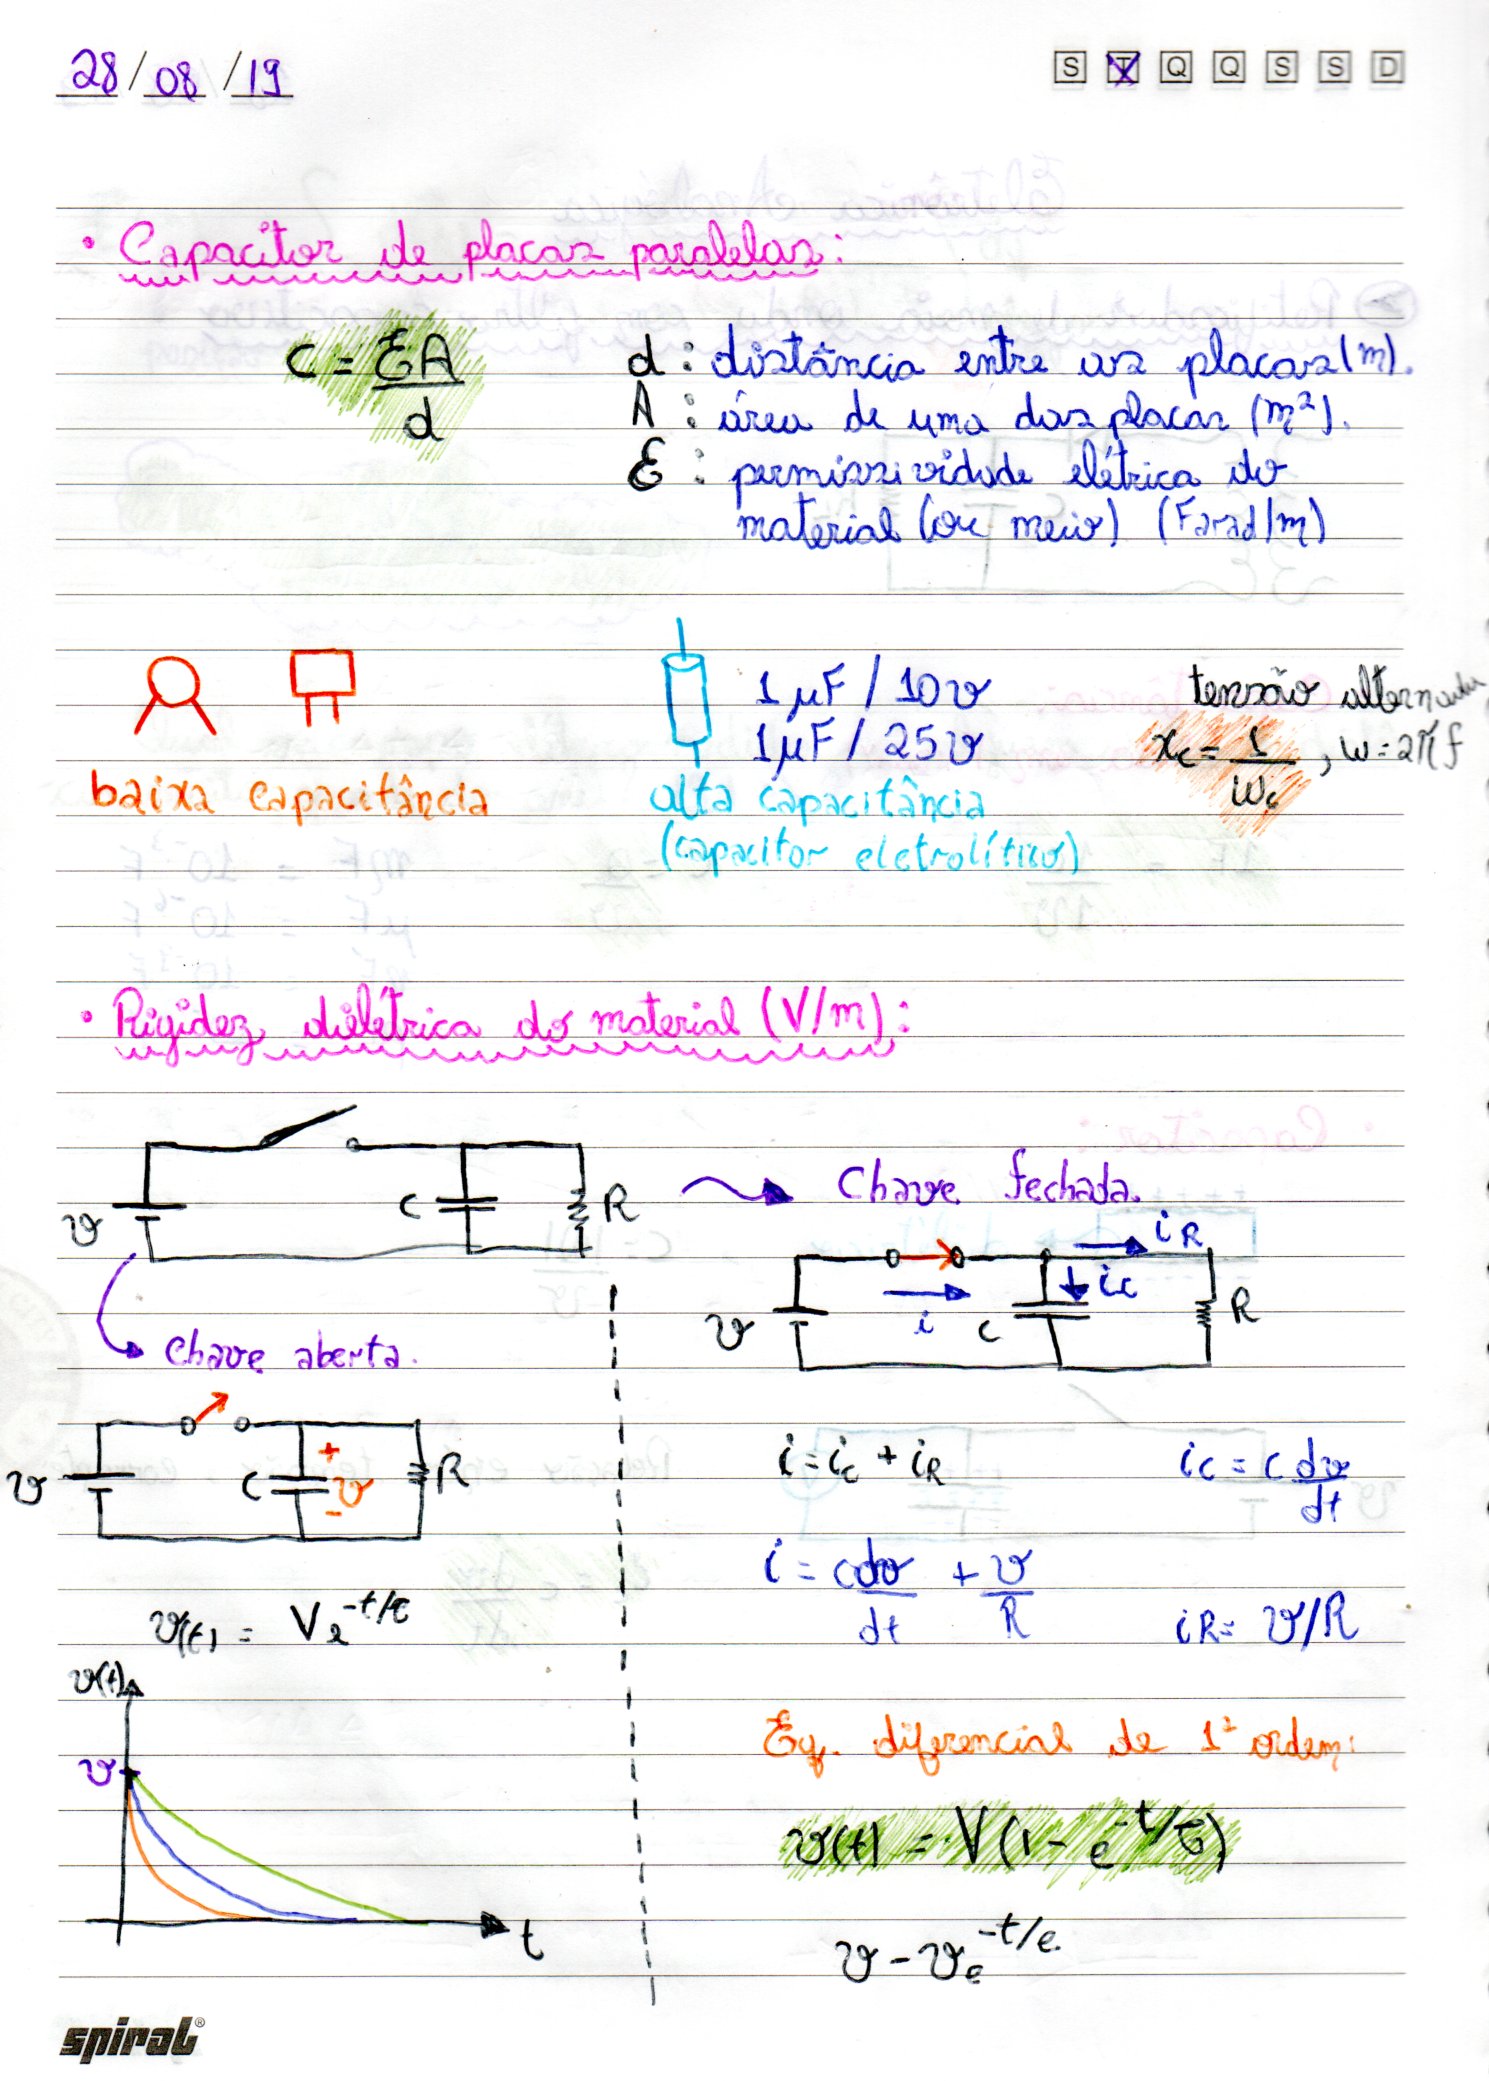 28/08/19
S T Q Q S S D
• Capacitor de placas paralelas:
C = εA/d
d : distância entre as placas (m).
A : área de uma das placas (m²).
ε : permissividade elétrica do
material (ou meio) (Farad/m)
1 μF / 10v
1 μF / 25v
baixa capacitância
alta capacitância
(capacitor eletrolítico)
tensão alternada
xc = 1/wc , w = 2πf
• Rigidez dielétrica do material (V/m):
v
C
R
Chave fechada.
i
iR
ic
v
C
R
Chave aberta.
v
C
+
v
-
R
v(t) = Ve^-t/τ
v(t)
v
t
i = ic + iR
ic = c dv/dt
i = c dv/dt + v/R
iR = v/R
Eq. diferencial de 1ª ordem:
v(t) = V(1 - e^-t/τ)
v - ve^-t/e.
spiral®